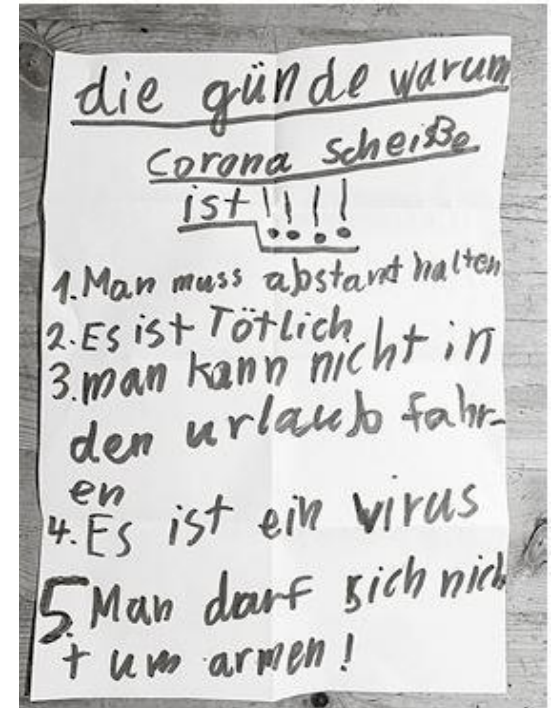 die günde warum
Corona scheiße
ist!!!!
1. Man muss abstant halten
2. Es ist Tötlich
3. man kann nicht in
den urlaub fahr-
en
4. Es ist ein virus
5. Man darf sich nich
t um armen!